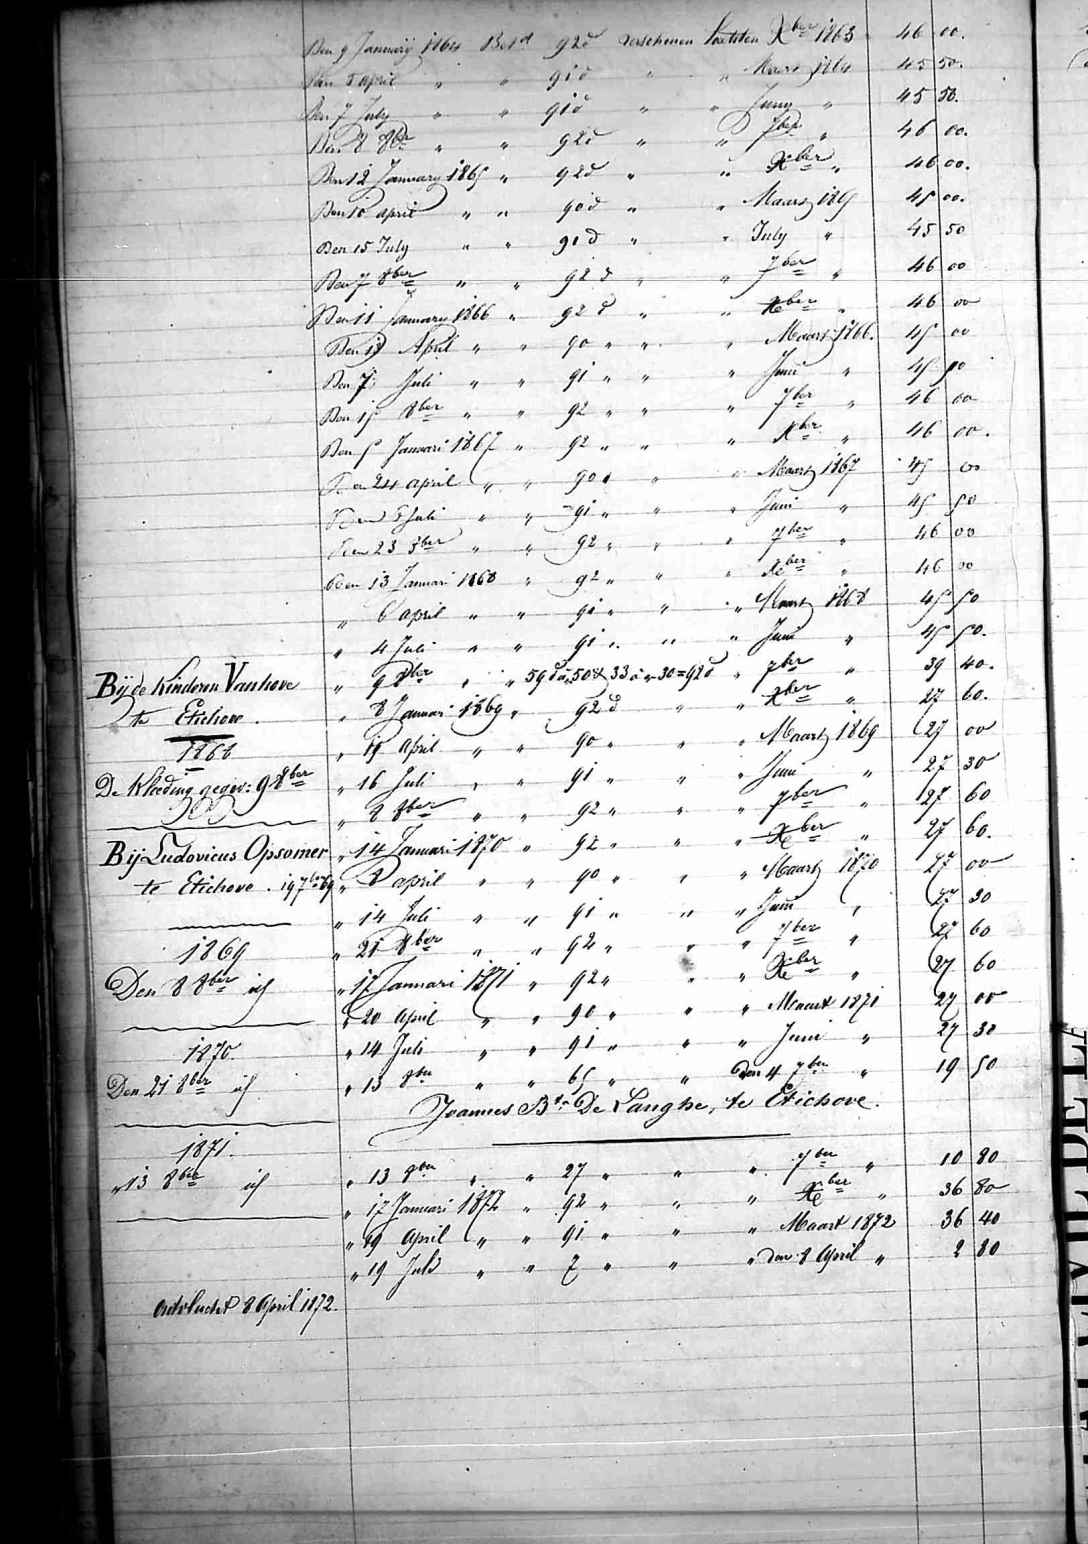 Den 9 January 1864 Bet d 92 d verschenen laetsten Xber 1863 46 00.
Den 5 april " " 91 d " " Maart 1864 45 50.
Den 7 July " " 91 d " " Juny " 45 50.
Den 8 8ber " " 92 d " " 7ber " 46 00.
Den 12 January 1865 " 92 d " " Xber " 46 00.
Den 10 april " " 90 d " " Maart 1865 45 00.
Den 15 July " " 91 d " " July " 45 50
Den 7 8ber " " 92 d " " 7ber " 46 00
Den 11 January 1866 " 92 d " " Xber " 46 00
Den 19 April " " 90 " " " Maart 1866. 45 00
Den 7 Juli " " 91 " " " Juni " 45 50
Den 15 8ber " " 92 " " " 7ber " 46 00
Den 5 Januari 1867 " 92 " " " Xber " 46 00.
Den 24 april " " 90 " " " Maart 1867 45 00
Den 5 Juli " " 91 " " " Juni " 45 50
Den 23 8ber " " 92 " " " 7ber " 46 00
Den 13 Januari 1868 " 92 " " " Xber " 46 00
" 6 april " " 91 " " " Maart 1868 45 50
" 4 Juli " " 91 " " " Juni " 45 50.
Bij de Kinderen Vanhove " 9 8ber " " 59 d à " 50 & 33 à " 30 = 92 d " 7ber " 39 40.
te Etichove. " 8 Januari 1869 " 92 d " " Xber " 27 60.
1868 " 19 April " " 90 " " " Maart 1869 27 00
De Kleeding gegev: 9 8ber " 16 Juli " " 91 " " " Juni " 27 30
" 8 8ber " " 92 " " " 7ber " 27 60
Bij Ludovicus Opsomer " 14 Januari 1870 " 92 " " " Xber " 27 60.
te Etichove. 19 7ber 69 " 8 april " " 90 " " " Maart 1870 27 00
" 14 Juli " " 91 " " " Juni " 27 30
1869 " 21 8ber " " 92 " " " 7ber " 27 60
Den 8 8ber id " 17 Januari 1871 " 92 " " " Xber " 27 60
" 20 April " " 90 " " " Maart 1871 27 00
1870 " 14 Juli " " 91 " " " Juni " 27 30
Den 21 8ber id " 13 8ber " " 65 " " den 4 7ber " 19 50
Joannes Bta De Langhe, te Etichove.
1871.
" 13 8ber id " 13 8ber " " 27 " " " 7ber " 10 80
" 17 Januari 1872 " 92 " " " Xber " 36 80
" 19 April " " 91 " " " Maart 1872 36 40
" 19 Juli " " 7 " " " den 8 April " 2 80
Ontvlucht 8 April 1872.